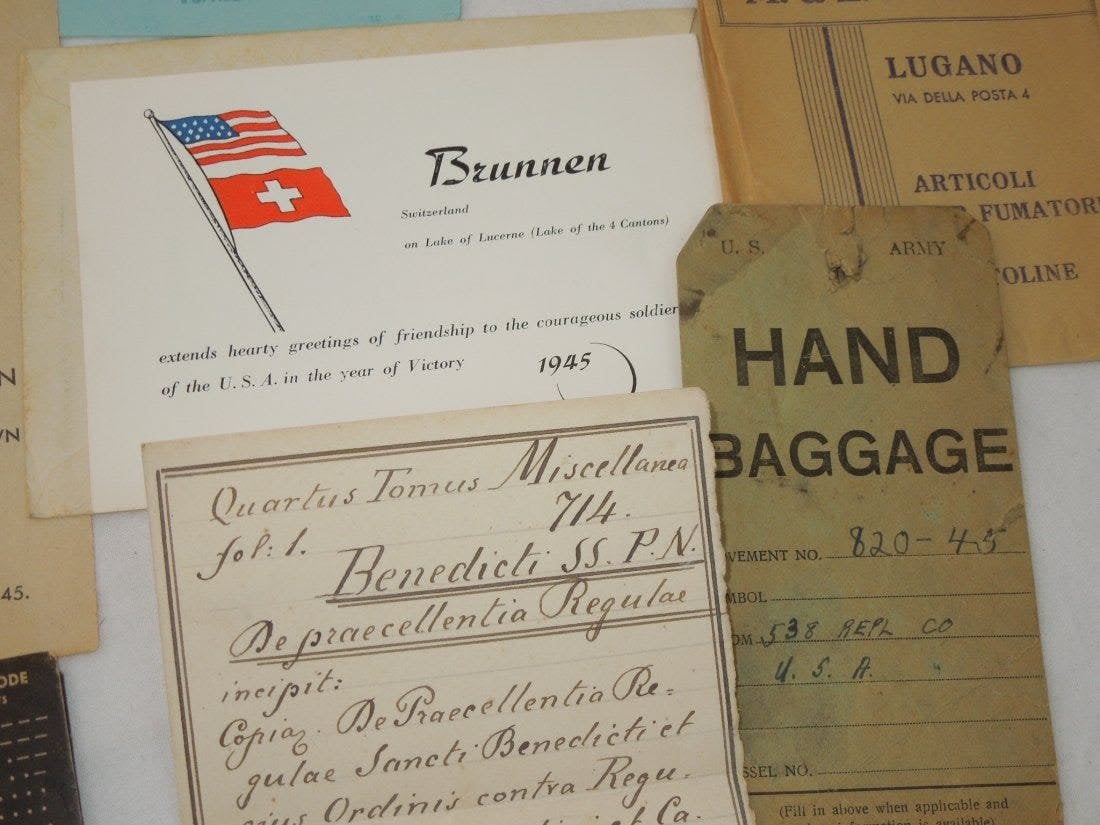 Brunnen
Switzerland
on Lake of Lucerne (Lake of the 4 Cantons)
extends hearty greetings of friendship to the courageous soldier
of the U.S.A. in the year of Victory
1945
LUGANO
VIA DELLA POSTA 4
ARTICOLI
FUMATORI
OLINE
U. S. ARMY
HAND
BAGGAGE
VEMENT NO. 820-45
MBOL
OM 538 REPL CO
U. S. A.
SSEL NO.
(Fill in above when applicable and
Quartus Tomus Miscellanea
714.
fol: 1.
Benedicti SS. P. N.
De praecellentia Regulae
incipit:
Copiaz. De Praecellentia Re=
gulae Sancti Benedicti et
Ordinis contra Regu.
et Ca.
45.
ODE